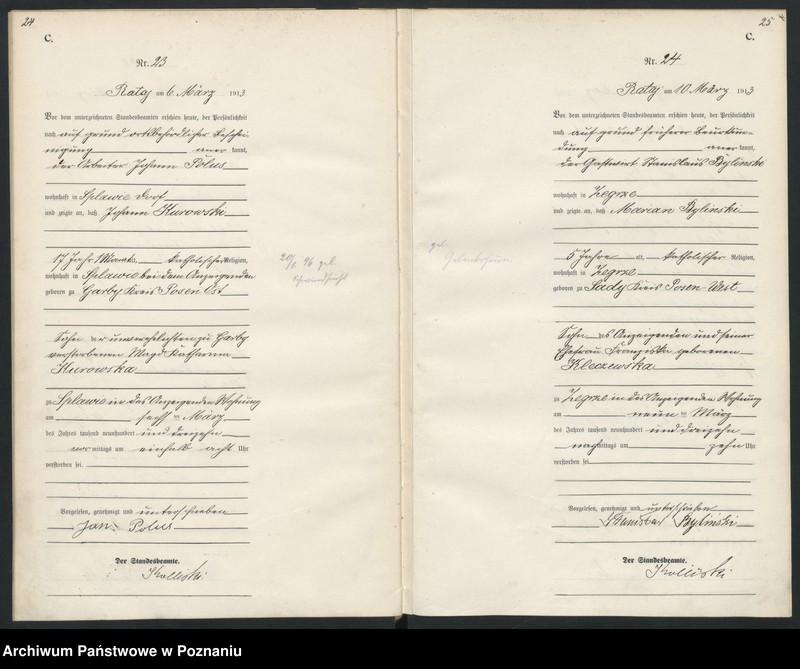 24
C.
Nr. 23
Rataj am 6. März 1913
Vor dem unterzeichneten Standesbeamten erschien heute, der Persönlichkeit
nach auf grund ortsbehördlicher Beschei-
nigung anerkannt,
der Arbeiter Johann Polus
wohnhaft in Splawie Dorf
und zeigte an, daß Johann Kurowski
17 Jahr katholischer Religion,
wohnhaft in Splawie bei dem Anzeigenden
geboren zu Garby Kreis Posen Ost
Sohn der unverehelichten zu Garby
verstorbenen Magd Katharina
Kurowska
zu Splawie in des Anzeigenden Wohnung
am sechsten März
des Jahres tausend neunhundert und dreizehn
vormittags um einhalb acht Uhr
verstorben sei.
Vorgelesen, genehmigt und unterschrieben
Jan Polus
Der Standesbeamte.
gel.
Schwindsucht
25
C.
Nr. 24
Rataj am 10. März 1913
Vor dem unterzeichneten Standesbeamten erschien heute, der Persönlichkeit
nach auf grund früherer Beurkun-
dung anerkannt,
der Gastwirt Stanislaus Bylinski
wohnhaft in Zegrze
und zeigte an, daß Marian Bylinski
5 Jahre alt, katholischer Religion,
wohnhaft in Zegrze
geboren zu Sady Kreis Posen-West
Sohn des Anzeigenden und seiner
Ehefrau Franziska geborenen
Kleczewska
zu Zegrze in des Anzeigenden Wohnung
am neunten März
des Jahres tausend neunhundert und dreizehn
nachmittags um zehn Uhr
verstorben sei.
Vorgelesen, genehmigt und unterschrieben
Stanisław Byliński
Der Standesbeamte.
gel.
Archiwum Państwowe w Poznaniu